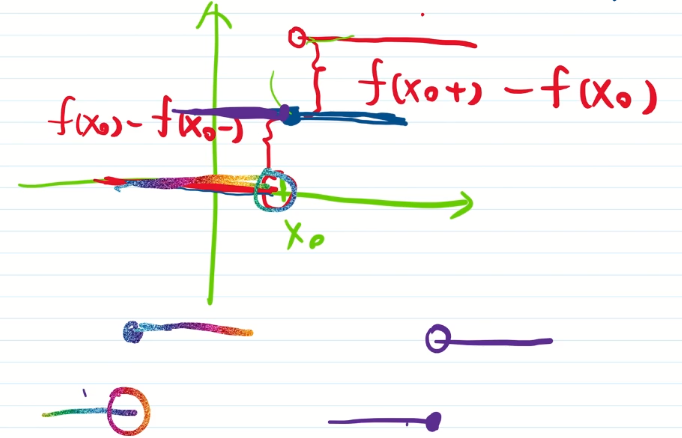 f(x₀+) - f(x₀)
f(x₀) - f(x₀-)
x₀